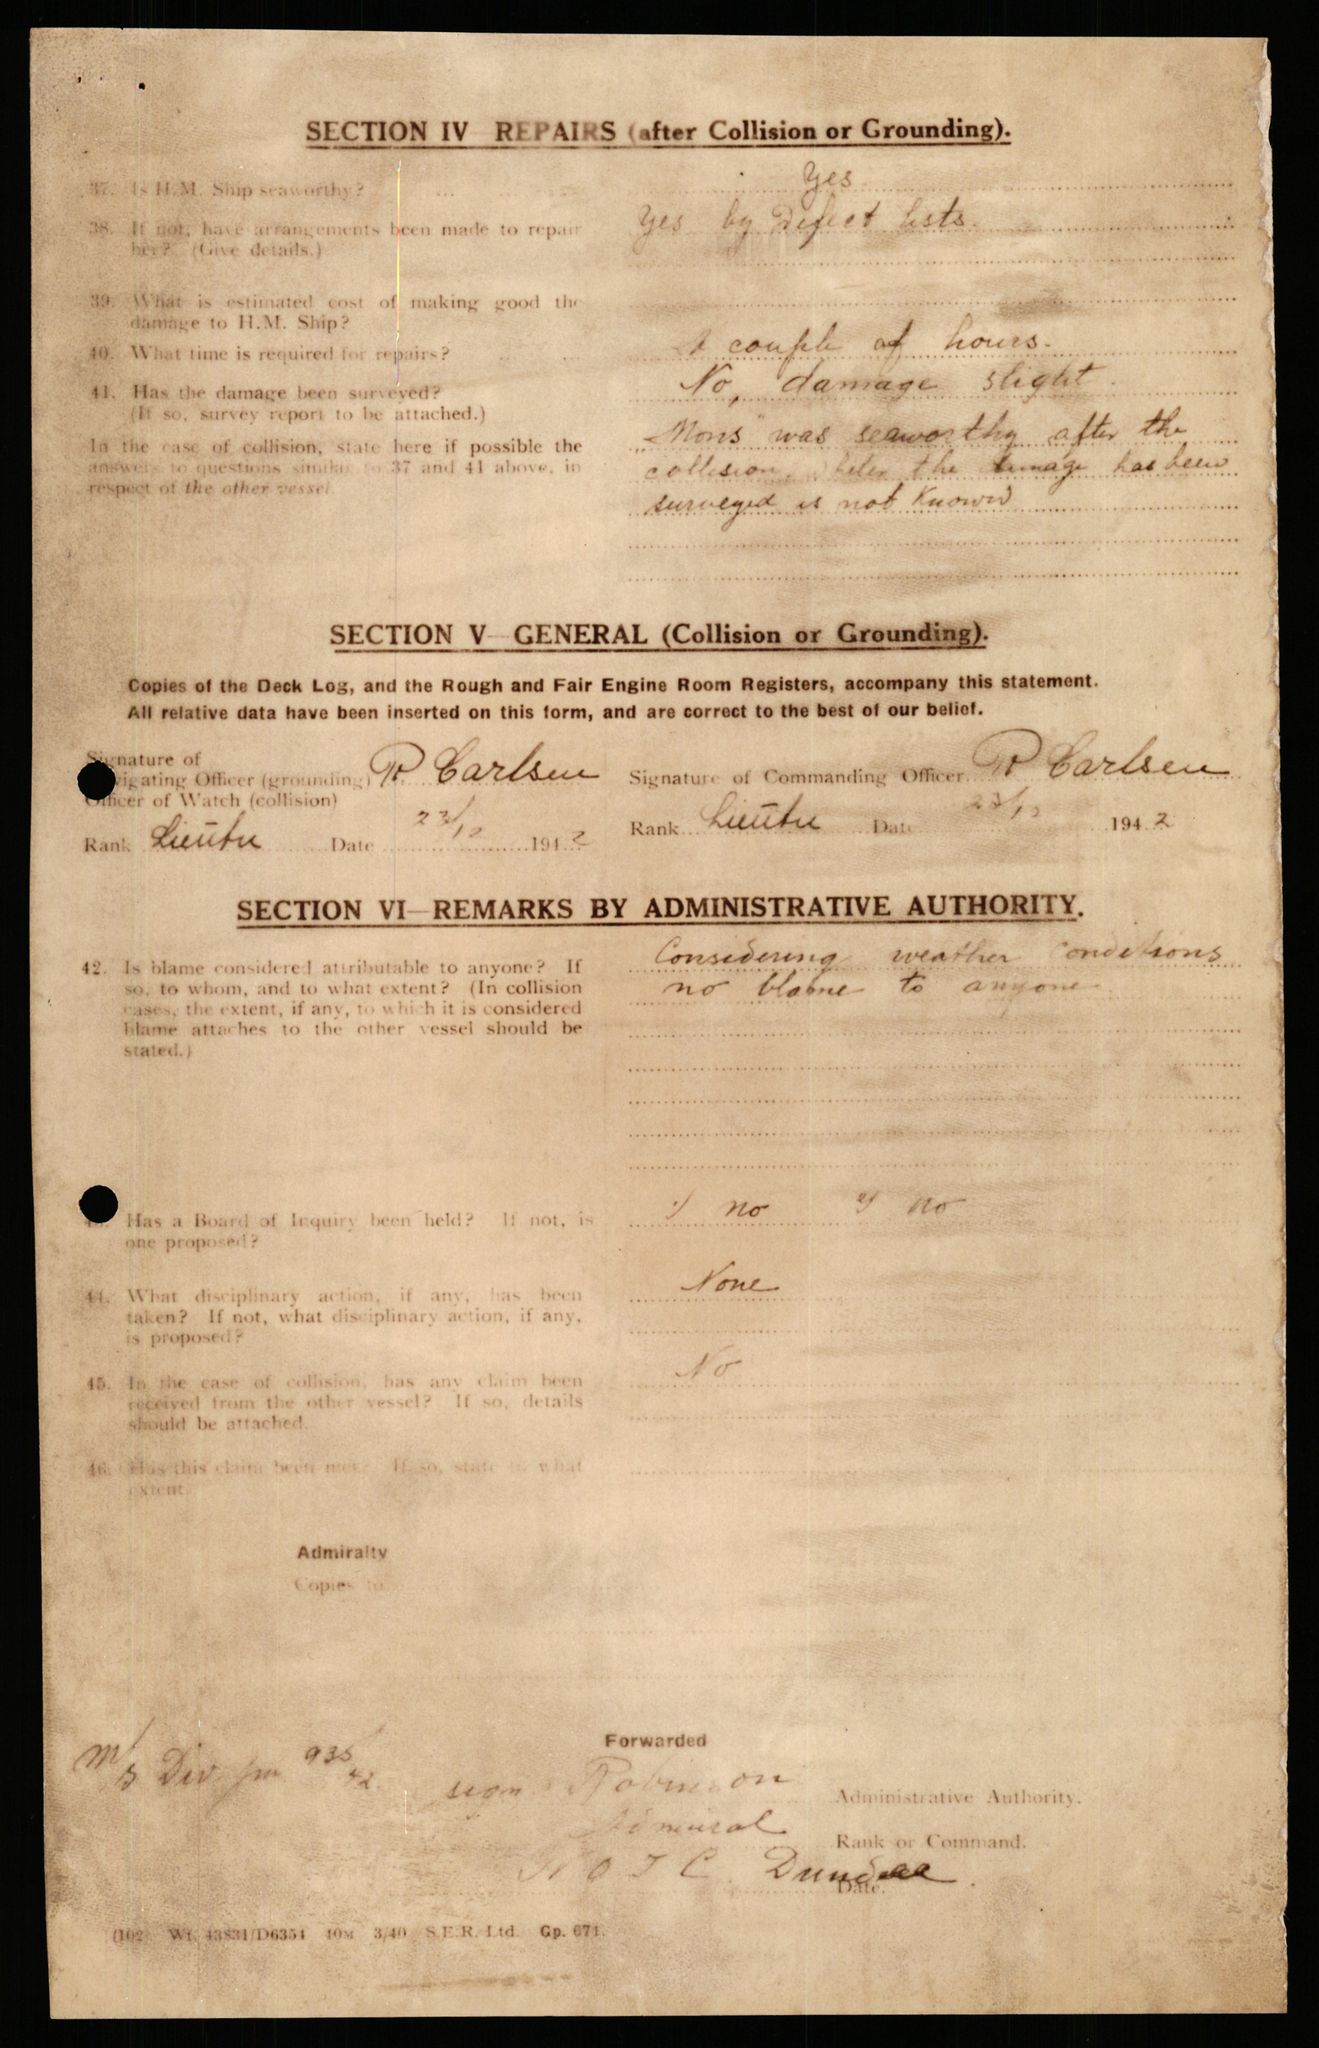 SECTION IV REPAIRS (after Collision or Grounding).
37. Is H.M. Ship seaworthy? Yes
38. If not, have arrangements been made to repair her? (Give details.) Yes by Defect lists.
39. What is estimated cost of making good the
damage to H.M. Ship?
40. What time is required for repairs? A couple of hours.
41. Has the damage been surveyed? No, damage slight.
(If so, survey report to be attached.)
In the case of collision, state here if possible the
answers to questions similar to 37 and 41 above, in
respect of the other vessel.
"Mons" was seaworthy after the
collision. the damage has been
surveyed is not known
SECTION V—GENERAL (Collision or Grounding).
Copies of the Deck Log, and the Rough and Fair Engine Room Registers, accompany this statement.
All relative data have been inserted on this form, and are correct to the best of our belief.
Signature of
Navigating Officer (grounding) Carlsen
Officer of Watch (collision)
Rank Lieutn Date 23/12 1942
Signature of Commanding Officer Carlsen
Rank Lieutn Date 23/12 1942
SECTION VI—REMARKS BY ADMINISTRATIVE AUTHORITY.
42. Is blame considered attributable to anyone? If
so, to whom, and to what extent? (In collision
cases, the extent, if any, to which it is considered
blame attaches to the other vessel should be
stated.)
Considering weather conditions
no blame to anyone
Has a Board of Inquiry been held? If not, is
one proposed?
1/ no 2/ no
44. What disciplinary action, if any, has been
taken? If not, what disciplinary action, if any,
is proposed?
None
45. In the case of collision, has any claim been
received from the other vessel? If so, details
should be attached.
No
46. Has this claim been met? If so, state to what
extent.
Admiralty
Copies to
Forwarded
M/S Div jnr 935/42
sign. Robinson
Administrative Authority.
Admiral
Rank or Command.
N O I C Dundee.
Date.
(102) Wt. 43831/D6354 40M 3/40 S.E.R. Ltd. Gp. 671.